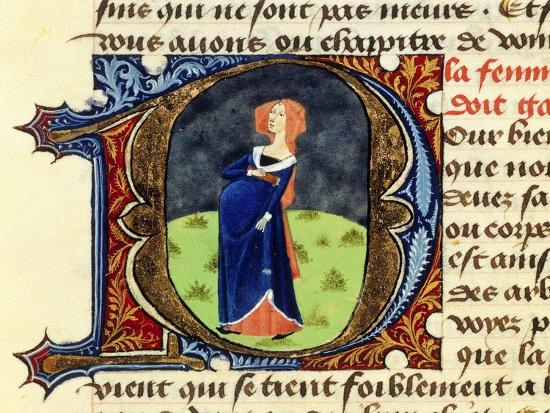 sins qui ne sont pas meurs. Et s
vous auons ou chappitre de vom
la femm
doit ga
Our bien
que nor
deuez sa
ou corps
est ains
des arb
voyez p
que la
vient qui se tient foiblement a l